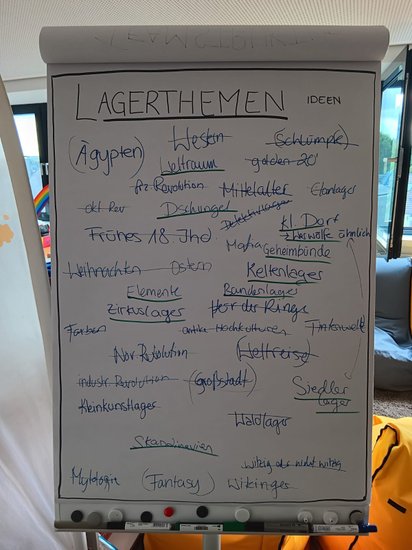 LAGERTHEMEN IDEEN
(Ägypten) Western (Schlümpfe)
Weltraum golden 20'
frz Revolution Mittelalter Clanlager
okt Rev Dschungel Detektivlager kl. Dorf
Frühes 18. Jhd z Werwölfe ähnlich
Mafia Geheimbünde
Weihnachten Ostern Keltenlager
Elemente Bandenlager
Zirkuslager Herr der Ringe
Farben antike Hochkulturen Tintenwelt
Nov Revolution (Weltreise)
industr. Revolution (Großstadt) Siedler
Kleinkunstlager lager
Waldlager
Skandinavien
witzig als nicht witzig
Mythologie (Fantasy) Wikinger